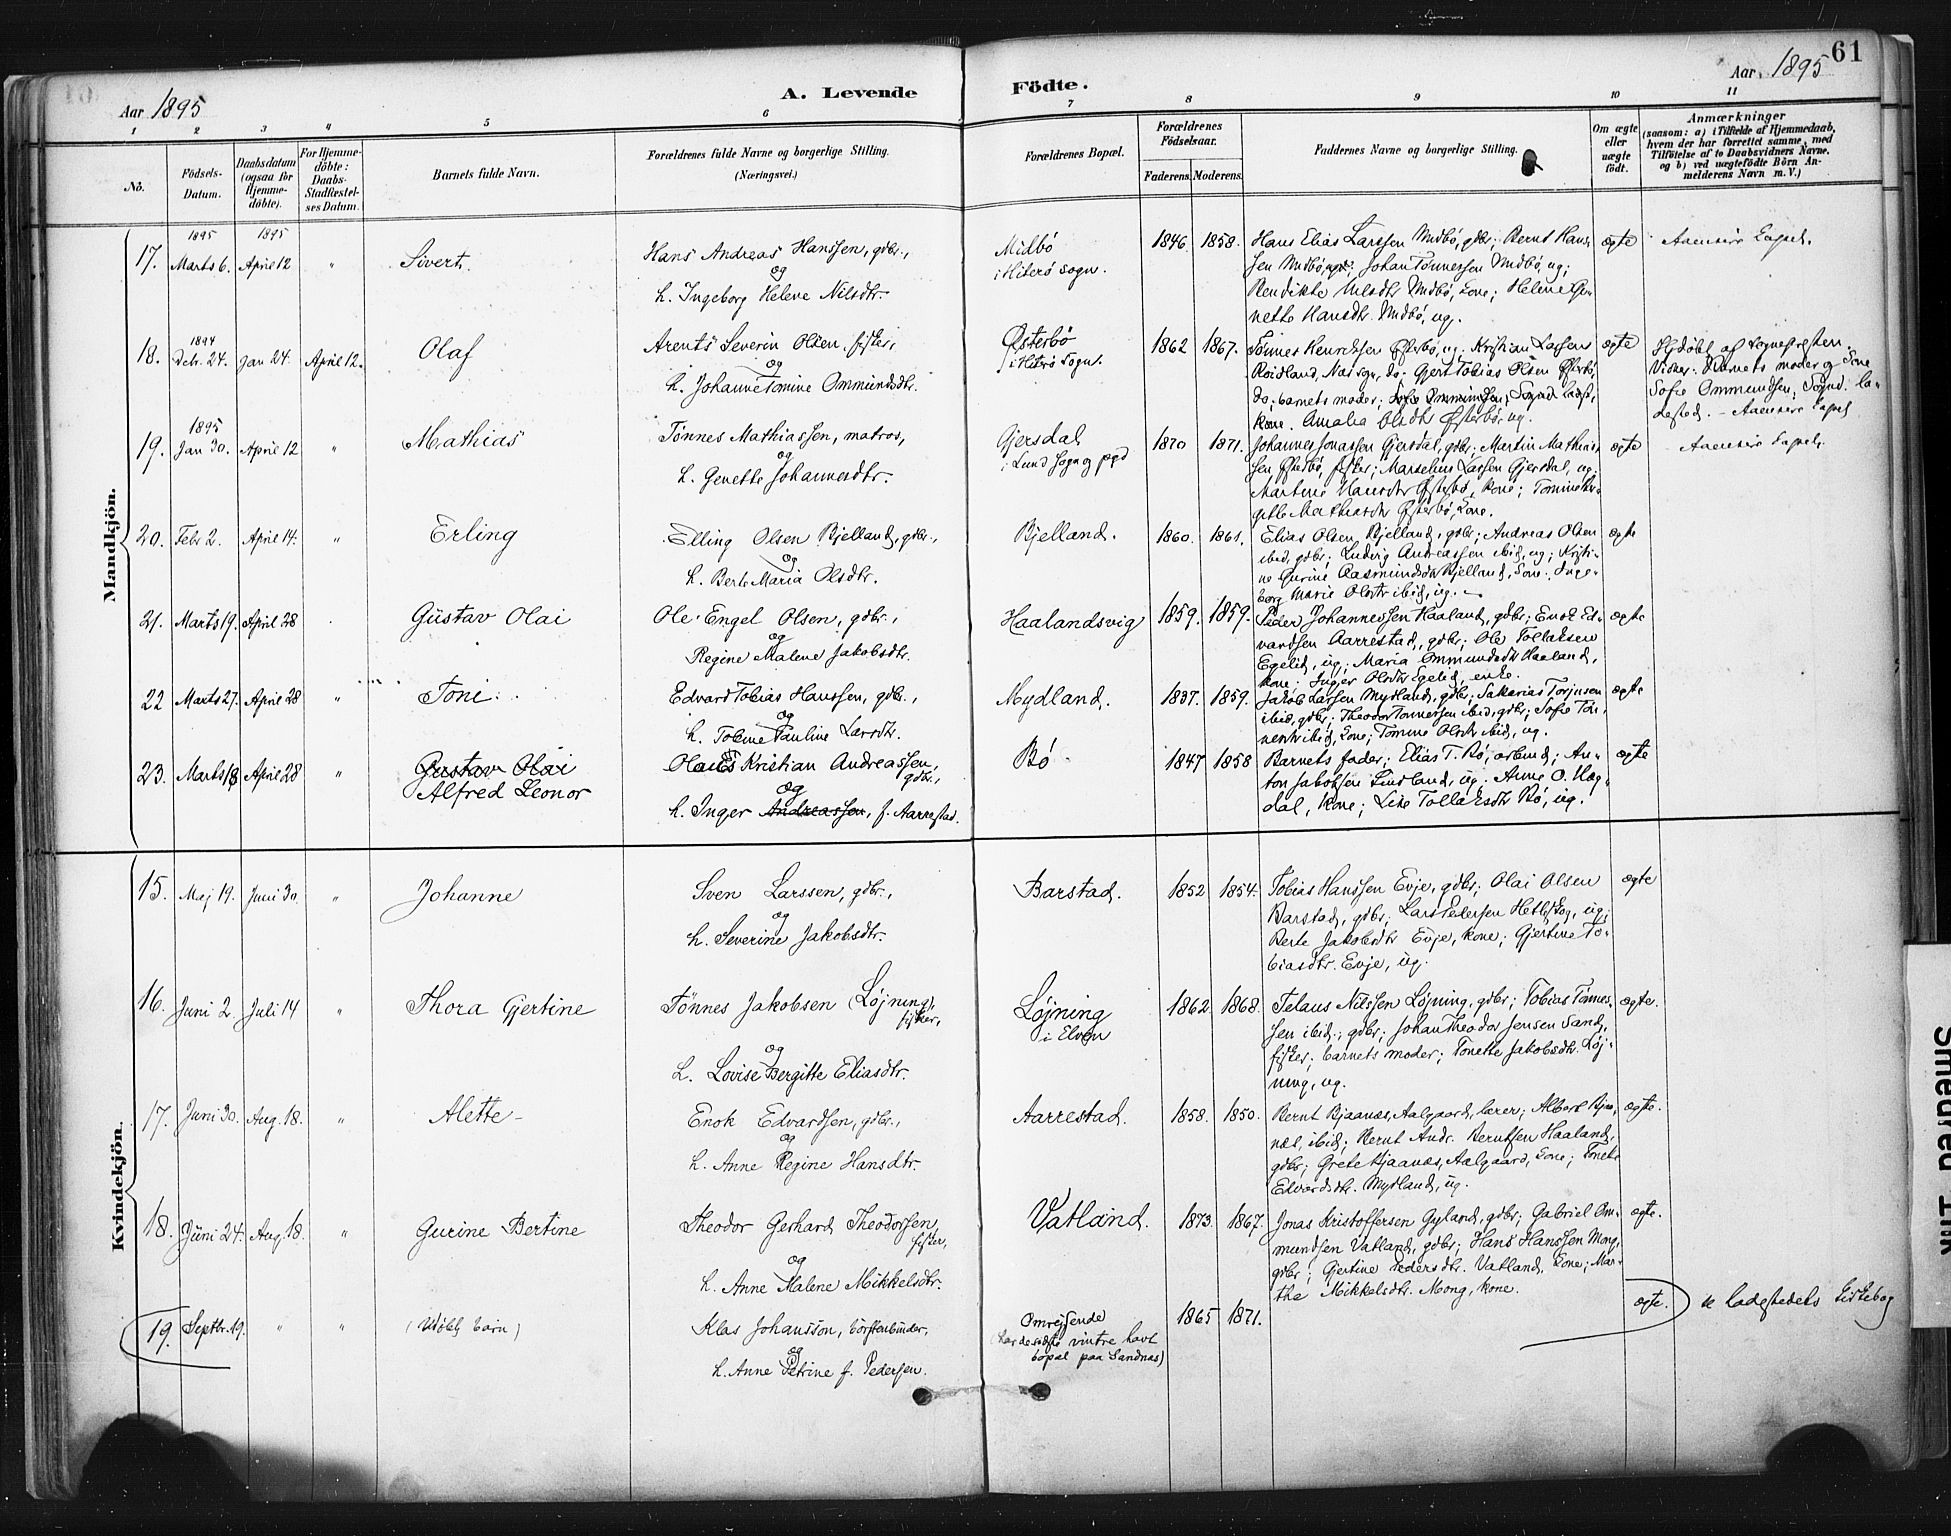 61
Aar 1895
A. Levende
Födte.
Aar 1895
1 2 3 4 5 6 7 8 9 10 11
No.
Födsels-
Datum.
Daabsdatum
(ogsaa for
Hjemme-
döbte).
For Hjemme-
döbte:
Daabs-
Stadfæstel-
ses Datum.
Barnets fulde Navn.
Forældrenes fulde Navne og borgerlige Stilling.
(Næringsvei.)
Forældrenes Bopæl.
Forældrenes
Födselsaar.
Faderens. Moderens.
Faddernes Navne og borgerlige Stilling.
Om ægte
eller
uægte
födt.
Anmærkninger
(saasom: a) i Tilfælde af Hjemmedaab,
hvem der har forrettet samme, med
Tilföielse af to Daabsvidners Navne,
og b) ved uægtefödte Börn An-
melderens Navn m. V.)
Mandkjön.
17. 1895 Marts 6. 1895 April 12 " Sivert.
Hans Andreas Hanssen, gdbr.,
og
h. Ingeborg Helene Nilsdtr.
Midbö
i Hiterö Sogn.
1846. 1858.
Hans Elias Larssen Midbö, gdbr; Bernt Hans-
sen Midbö, ; Johan Tönnessen Midbö, ug;
Bendikte Nilsdtr Midbö, kone; Helene Ge-
nette Hansdtr. Midbö, ug.
ægte
Aaensire Capel.
18. 1894 Dcbr. 24. Jan 24. April 12. Olaf
Arents Severin Olsen, fisker,
og
h. Johanne Tomine Ommundsdtr.
Østerbö
i Hiterö Sogn.
1862 1867.
Tönnes Henriksen Østerbö, ug; Kristian Larssen
Roidland, Næs sgn, do. Gjert Tobias Olsen Østerbö,
do; barnets moder; Sofie Ommundsen, Sogndal Ladest.,
kone. Amalia Olsdtr Østerbö, ug.
ægte
Hjdöbt af sognepresten.
Vidner: Barnets moder og kone
Sofie Ommundsen, Sognd. la-
dested. - Aaensire Capel
19. 1895 Jan 30. April 12 " Mathias
Tönnes Mathiassen, matros,
og
h. Genette Johannesdtr.
Gjersdal
i Lund Sogn og pgd
1870 1871.
Johannes Jonassen Gjersdal, gdbr; Martin Mathias-
sen Østerbö, fisker; Marselius Larsen Gjersdal, ug;
Martine Hansdtr Østerbö, kone; Tomine
Mathiasdtr Østerbö, kone.
ægte
Aaensire Capel.
20. Febr 2. April 14. " Erling
Elling Olsen Bjelland, gdbr.,
og
h. Berte Maria Olsdtr.
Bjelland.
1860. 1861.
Elias Olsen Bjelland, gdbr; Andreas Olsen
ibid, gdbr; Ludvig Andreassen ibid, ug; Kristi-
ne Gurine Aasmundsdtr Bjelland, kone; Inge-
borg Marie Olsdtr ibid, ug.
ægte
21. Marts 19. April 28 Gustav Olai
Ole Engel Olsen, gdbr.,
og
Regine Malene Jakobsdtr.
Haalandsvig
1859. 1859.
Peder Johannessen Haaland, gdbr; Enok Ed-
vardsen Aarrestad, gdbr; Ole Tollaksen
Egelid, ug; Maria Ommundsdtr Haaland,
kone; Inger Olsdtr Egelid, enke.
ægte
22 Marts 27. April 28 " Toni
Edvard Tobias Hanssen, gdbr.,
og
h. Tobine Pauline Larsdtr.
Mydland.
1837. 1859.
Jakob Larssen Mydland, gdbr; Sakarias Torjusen
ibid, gdbr; Theodor Tönnessen ibid, gdbr; Sofie Tön-
nesdtr ibid, kone; Tomine Olsdtr ibid, ug.
ægte
23. Marts 18 April 28 " Gustav Olai
Alfred Leonor
Olaus Kristian Andreassen,
gdbr.,
og
h. Inger Andreassen, f. Aarrestad.
Bö
1847 1858
Barnets fader; Elias T. Bö, arbmd; An-
ton Jakobsen Lindland, ug. Anne O. Hæg-
dal, kone; Lise Tollaksdtr Bö, ug.
ægte
Kvindekjön.
15. Maj 19. Juni 30. " Johanne
Sven Larssen, gdbr.,
og
h. Severine Jakobsdtr.
Barstad.
1852 1854.
Tobias Hanssen Evje, gdbr; Olai Olsen
Barstad, gdbr; Lars Pedersen Hetleskog, ug;
Berte Jakobsdtr Evje, kone; Gjertine To-
biasdtr. Evje, ug.
ægte
16. Juni 2. Juli 14 " Thora Gjertine
Tönnes Jakobsen (Löjning),
fisker,
og
h. Lovise Bergitte Eliasdtr.
Löjning
i Elven
1862 1868.
Telaus Nilssen Löjning, gdbr; Tobias Tönnes-
sen ibid.; gdbr; Johan Theodor Jensen Sand,
fisker; barnets moder; Tonette Jakobsdtr. Löj-
ning, ug.
ægte.
17. Juni 30. Aug. 18. " Alette
Enok Edvardsen, gdbr.,
og
h. Anne Regine Hansdtr.
Aarrestad.
1858. 1850.
Bernt Bjaanæs, Aalgaard, lærer; Albert Bjaa-
næs, ibid; Bernt Andr. Berntsen Haaland,
gdbr; Grete Bjaanæs, Aalgaard, kone; Tonette
Edvardsdtr. Mydland, ug.
ægte.
18. Juni 24. Aug. 18. " Gurine Bertine
Theodor Gerhard Theodorsen,
fisker,
og
h. Anne Malene Mikkelsdtr.
Vatland.
1873. 1867.
Jonas Kristoffersen Gyland, gdbr; Gabriel Om-
mundsen Vatland, gdbr; Hans Hanssen Mong,
gdbr; Gjertine Pedersdtr. Vatland, kone; Mar-
the Mikkelsdtr. Mong, kone.
ægte.
19. Septbr. 19. " " (Udöbt barn)
Klas Johansson, börstenbinder,
og
h. Anne Petrine f. Pedersen.
Omrejsende
(har de sidste vintre havt
bopæl paa Sandnæs)
1865 1871.
ægte.
se ladestedets kirkebog
Smedred Tilk